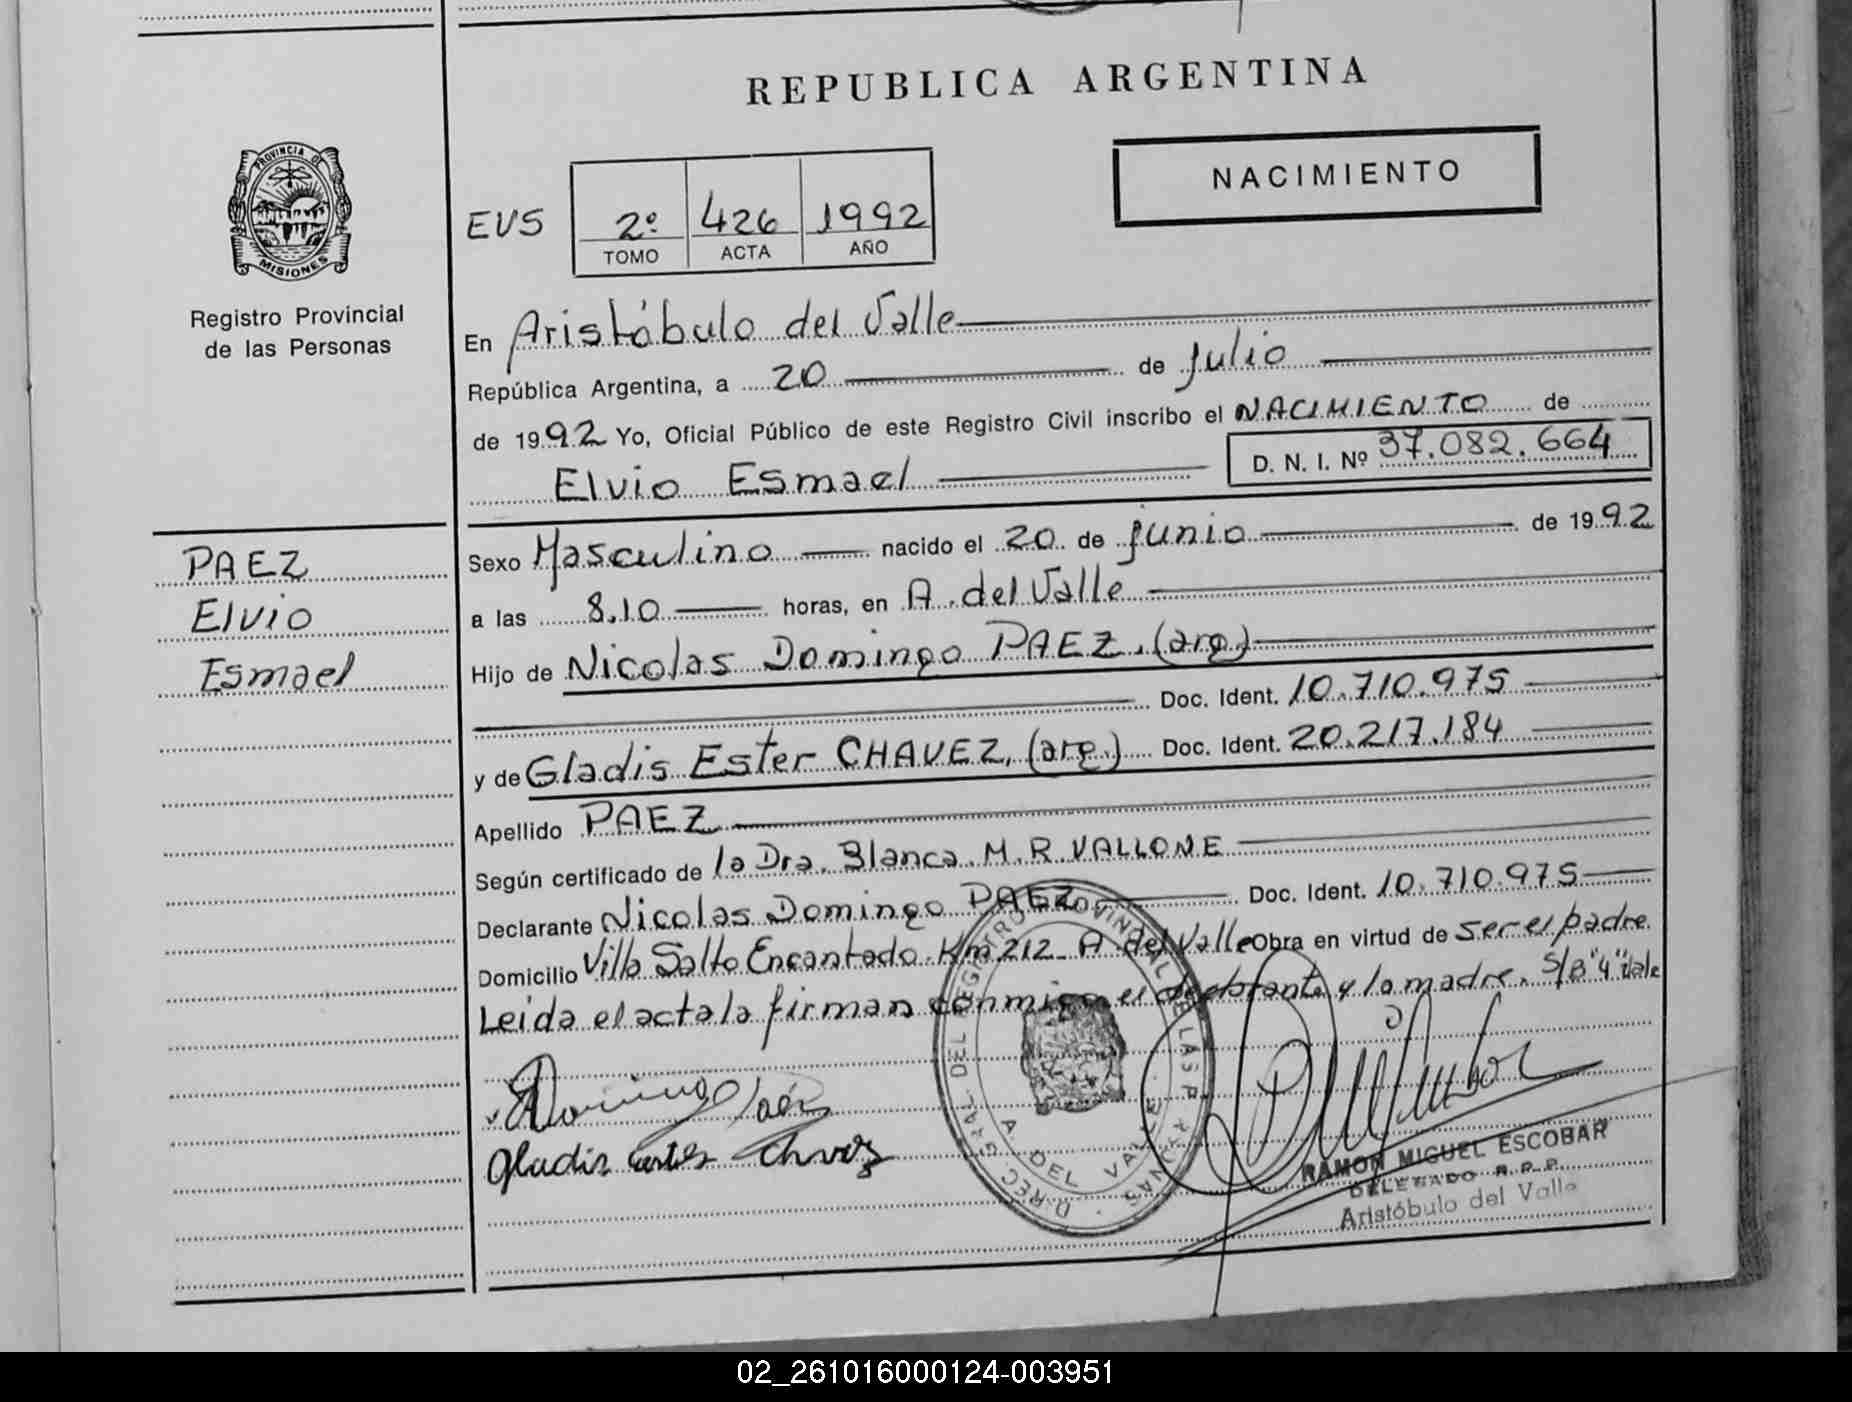 REPUBLICA ARGENTINA
NACIMIENTO
PROVINCIA DE
MISIONES
Registro Provincial
de las Personas
EVS 2º 426 1992
TOMO ACTA AÑO
En Aristóbulo del Valle
República Argentina, a 20 de julio
de 1992 Yo, Oficial Público de este Registro Civil inscribo el NACIMIENTO de
Elvio Esmael D. N. I. Nº 37.082.664
PAEZ
Elvio
Esmael
Sexo Masculino nacido el 20 de junio de 1992
a las 8.10 horas, en A. del Valle
Hijo de Nicolas Domingo PAEZ, (arg)
Doc. Ident. 10.710.975
y de Gladis Ester CHAVEZ, (arg.) Doc. Ident. 20.217.184
Apellido PAEZ
Según certificado de la Dra. Blanca M. R. VALLONE
Declarante Nicolas Domingo PAEZ Doc. Ident. 10.710.975
Domicilio Villa Salto Encantado Km 212 A. del Valle Obra en virtud de ser el padre.
Leida el acta la firman conmigo el declarante y la madre. S/B "4" vale
Domingo Paéz
Gladis Ester Chavez
DIREC. GRAL. DEL REGISTRO PROVINCIAL DE LAS PERSONAS
A. DEL VALLE
RAMON MIGUEL ESCOBAR
DELEGADO R.P.P.
Aristóbulo del Valle
02_261016000124-003951